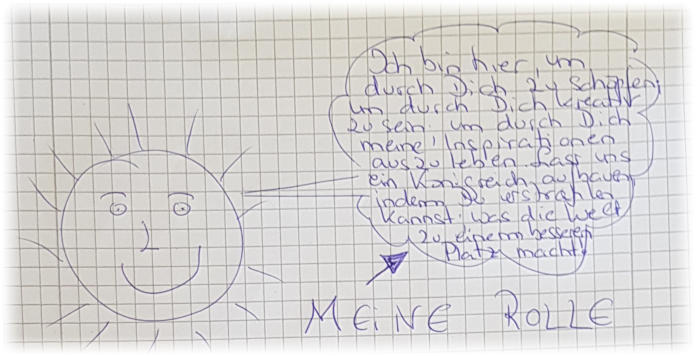 Ich bin hier, um
durch Dich zu schöpfen,
um durch Dich kreativ
zu sein, um durch Dich
meine Inspirationen
auszuleben. Lass uns
ein Königreich aufbauen,
indem Du erstrahlen
kannst, was die Welt
zu einem besseren
Platz macht!
MEINE ROLLE